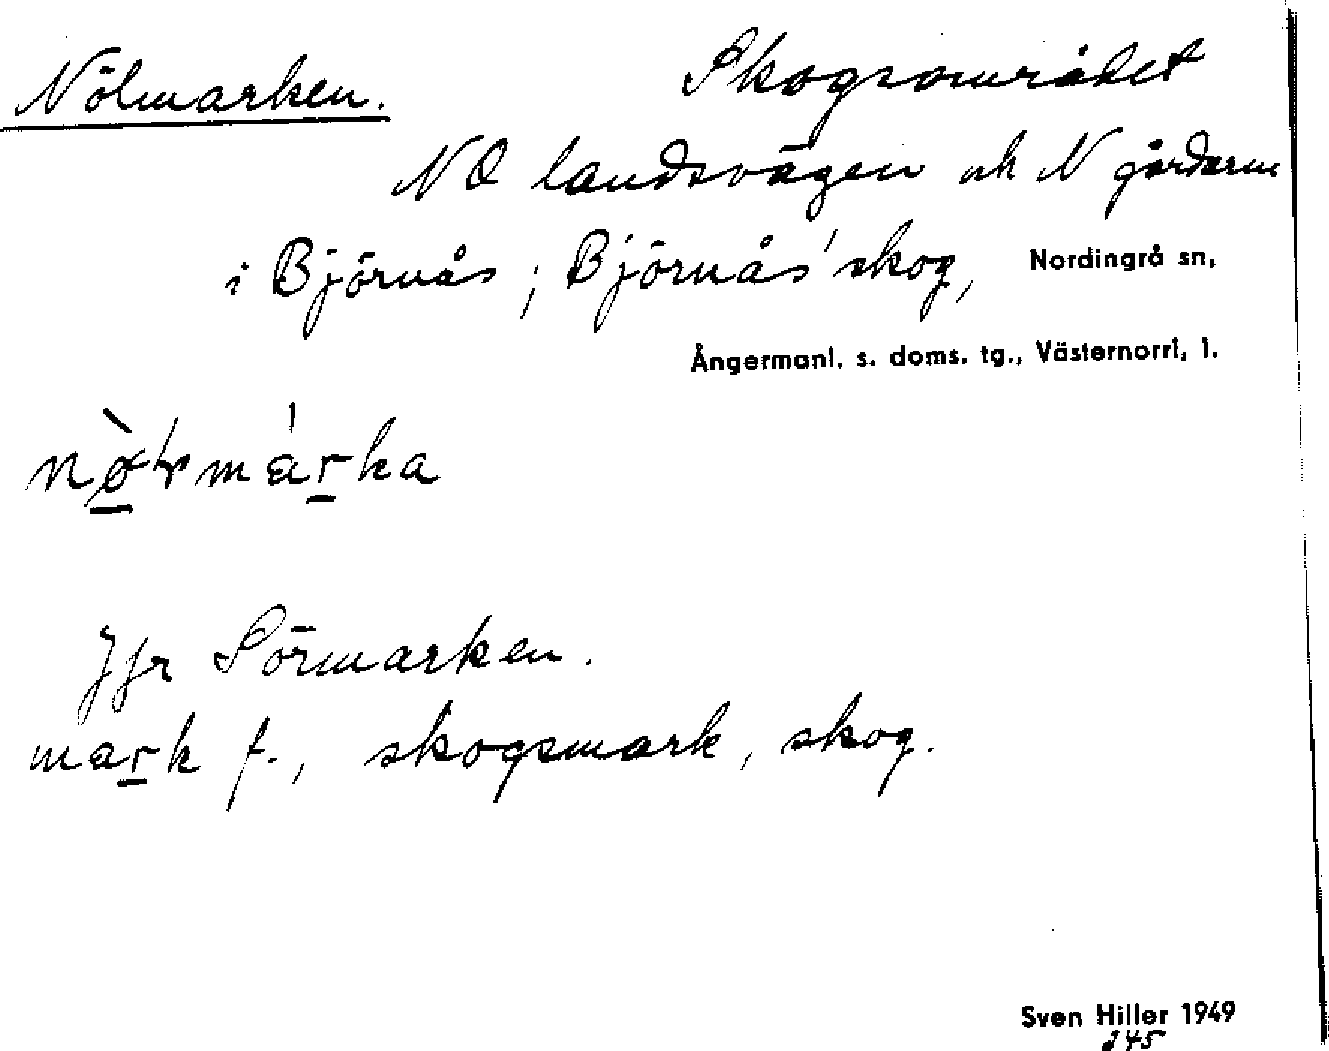 Nölmarken. Skogsområdet
NO landsvägen och N gårdarna
i Björnås; Björnås' skog, Nordingrå sn,
Ångermanl. s. doms. tg., Västernorrl, l.
Jfr Sörmarken.
mark f., skogsmark, skog.
Sven Hiller 1949
245